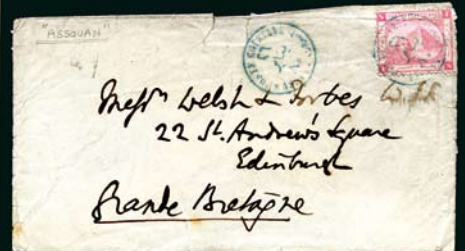 "ASSOUAN"
Messrs Welsh & Forbes
22 St. Andrew's Square
Edinburgh
Grande Bretagne